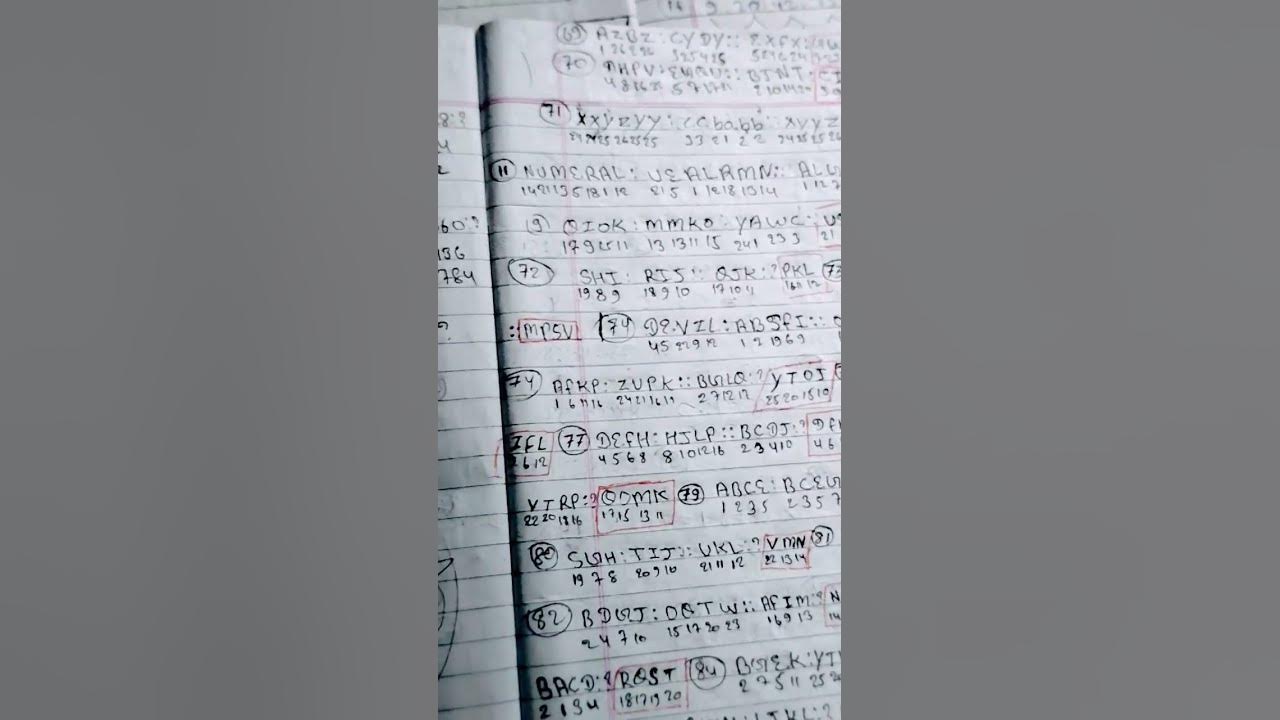 8:?
4
2
60:?
136
784
?
(69) AZBZ : CYDY :: EXFX :
1 26 2 26 3 25 4 25 5 24 6 24
(70) DHPV : EGQU :: BJNT :
4 8 16 22 5 7 17 21 2 10 14 20
(71) xxyzyy : ccbabb : xyyz
24 24 25 26 25 25 3 3 2 1 2 2 24 25 25 26
(11) NUMERAL : UEALRMN :: AL
14 21 13 5 18 1 12 21 5 1 12 18 13 14 1 12
(9) QIOK : MMKO : YAWC : U
17 9 25 11 13 13 11 15 24 1 23 3 21
(72) SHI : RIJ :: QJK :? PKL (73
19 8 9 18 9 10 17 10 11 16 11 12
: MPSV (74) DEVIL : ABSFI ::
4 5 22 9 12 1 2 19 6 9
(74) AFKP : ZUPK :: BGLQ :? YTOJ
1 6 11 16 24 21 16 11 2 7 12 12 25 20 15 10
IFL (77) DEFH : HJLP :: BCDJ :? DF
2 6 12 4 5 6 8 8 10 12 16 2 3 4 10 4 6
VTRP :? QOMK (79) ABCE : BCEG
22 20 18 16 17 15 13 11 1 2 3 5 2 3 5 7
(80) SGH : TIJ :: UKL :? VMN (81)
19 7 8 20 9 10 21 11 12 22 13 14
(82) BDGJ : OQTW :: AFIM :? N
2 4 7 10 15 17 20 23 1 6 9 13 14
BACD :? RQST (84) BGEK : YT
2 1 3 4 18 17 19 20 2 7 5 11 25 20